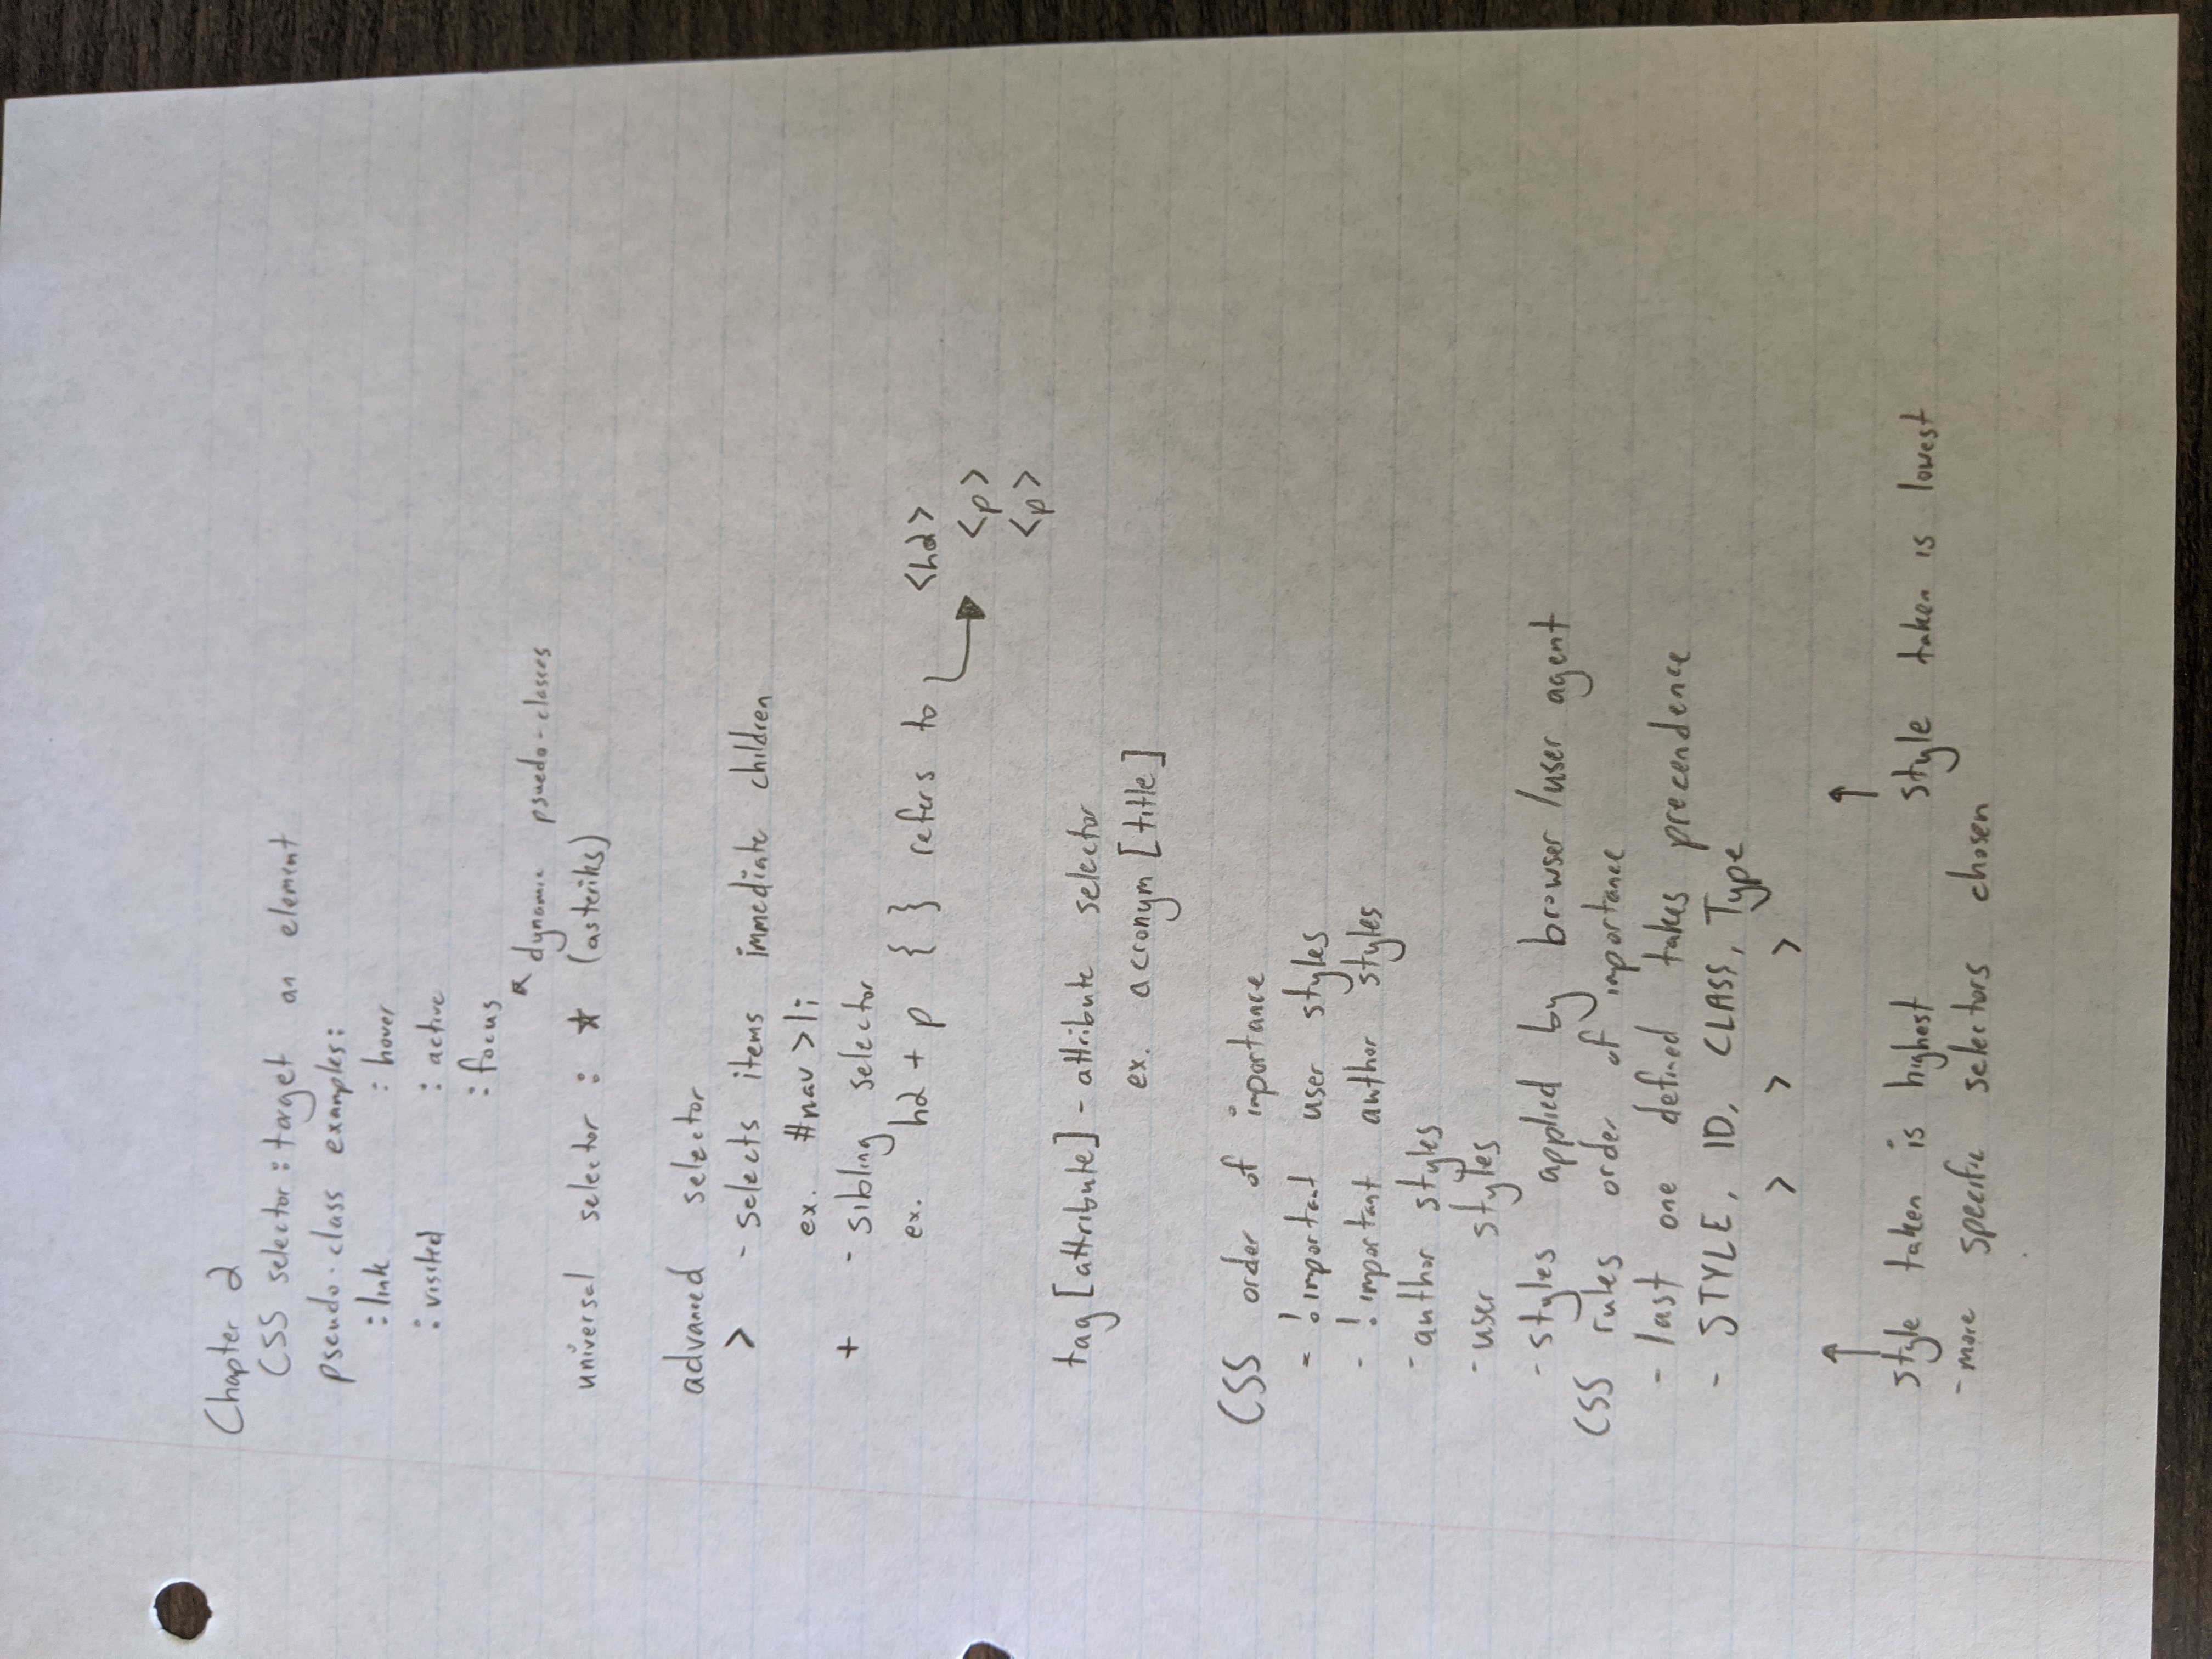 Chapter 2
CSS selector : target an element
pseudo-class examples:
:link : hover
: visited : active
: focus
dynamic psuedo-classes
universal selector : * (asteriks)
advanced selector
> - selects items immediate children
ex. #nav > li
+ - sibling selector
ex. h2 + p { } refers to <h2>
<p>
<p>
tag [attribute] - attribute selector
ex. acronym [title]
CSS order of importance
- !important user styles
- !important author styles
- author styles
- user styles
- styles applied by browser /user agent
CSS rules order of importance
- last one defined takes precendence
- STYLE, ID, CLASS, Type
> > >
style taken is highest style taken is lowest
- more specific selectors chosen